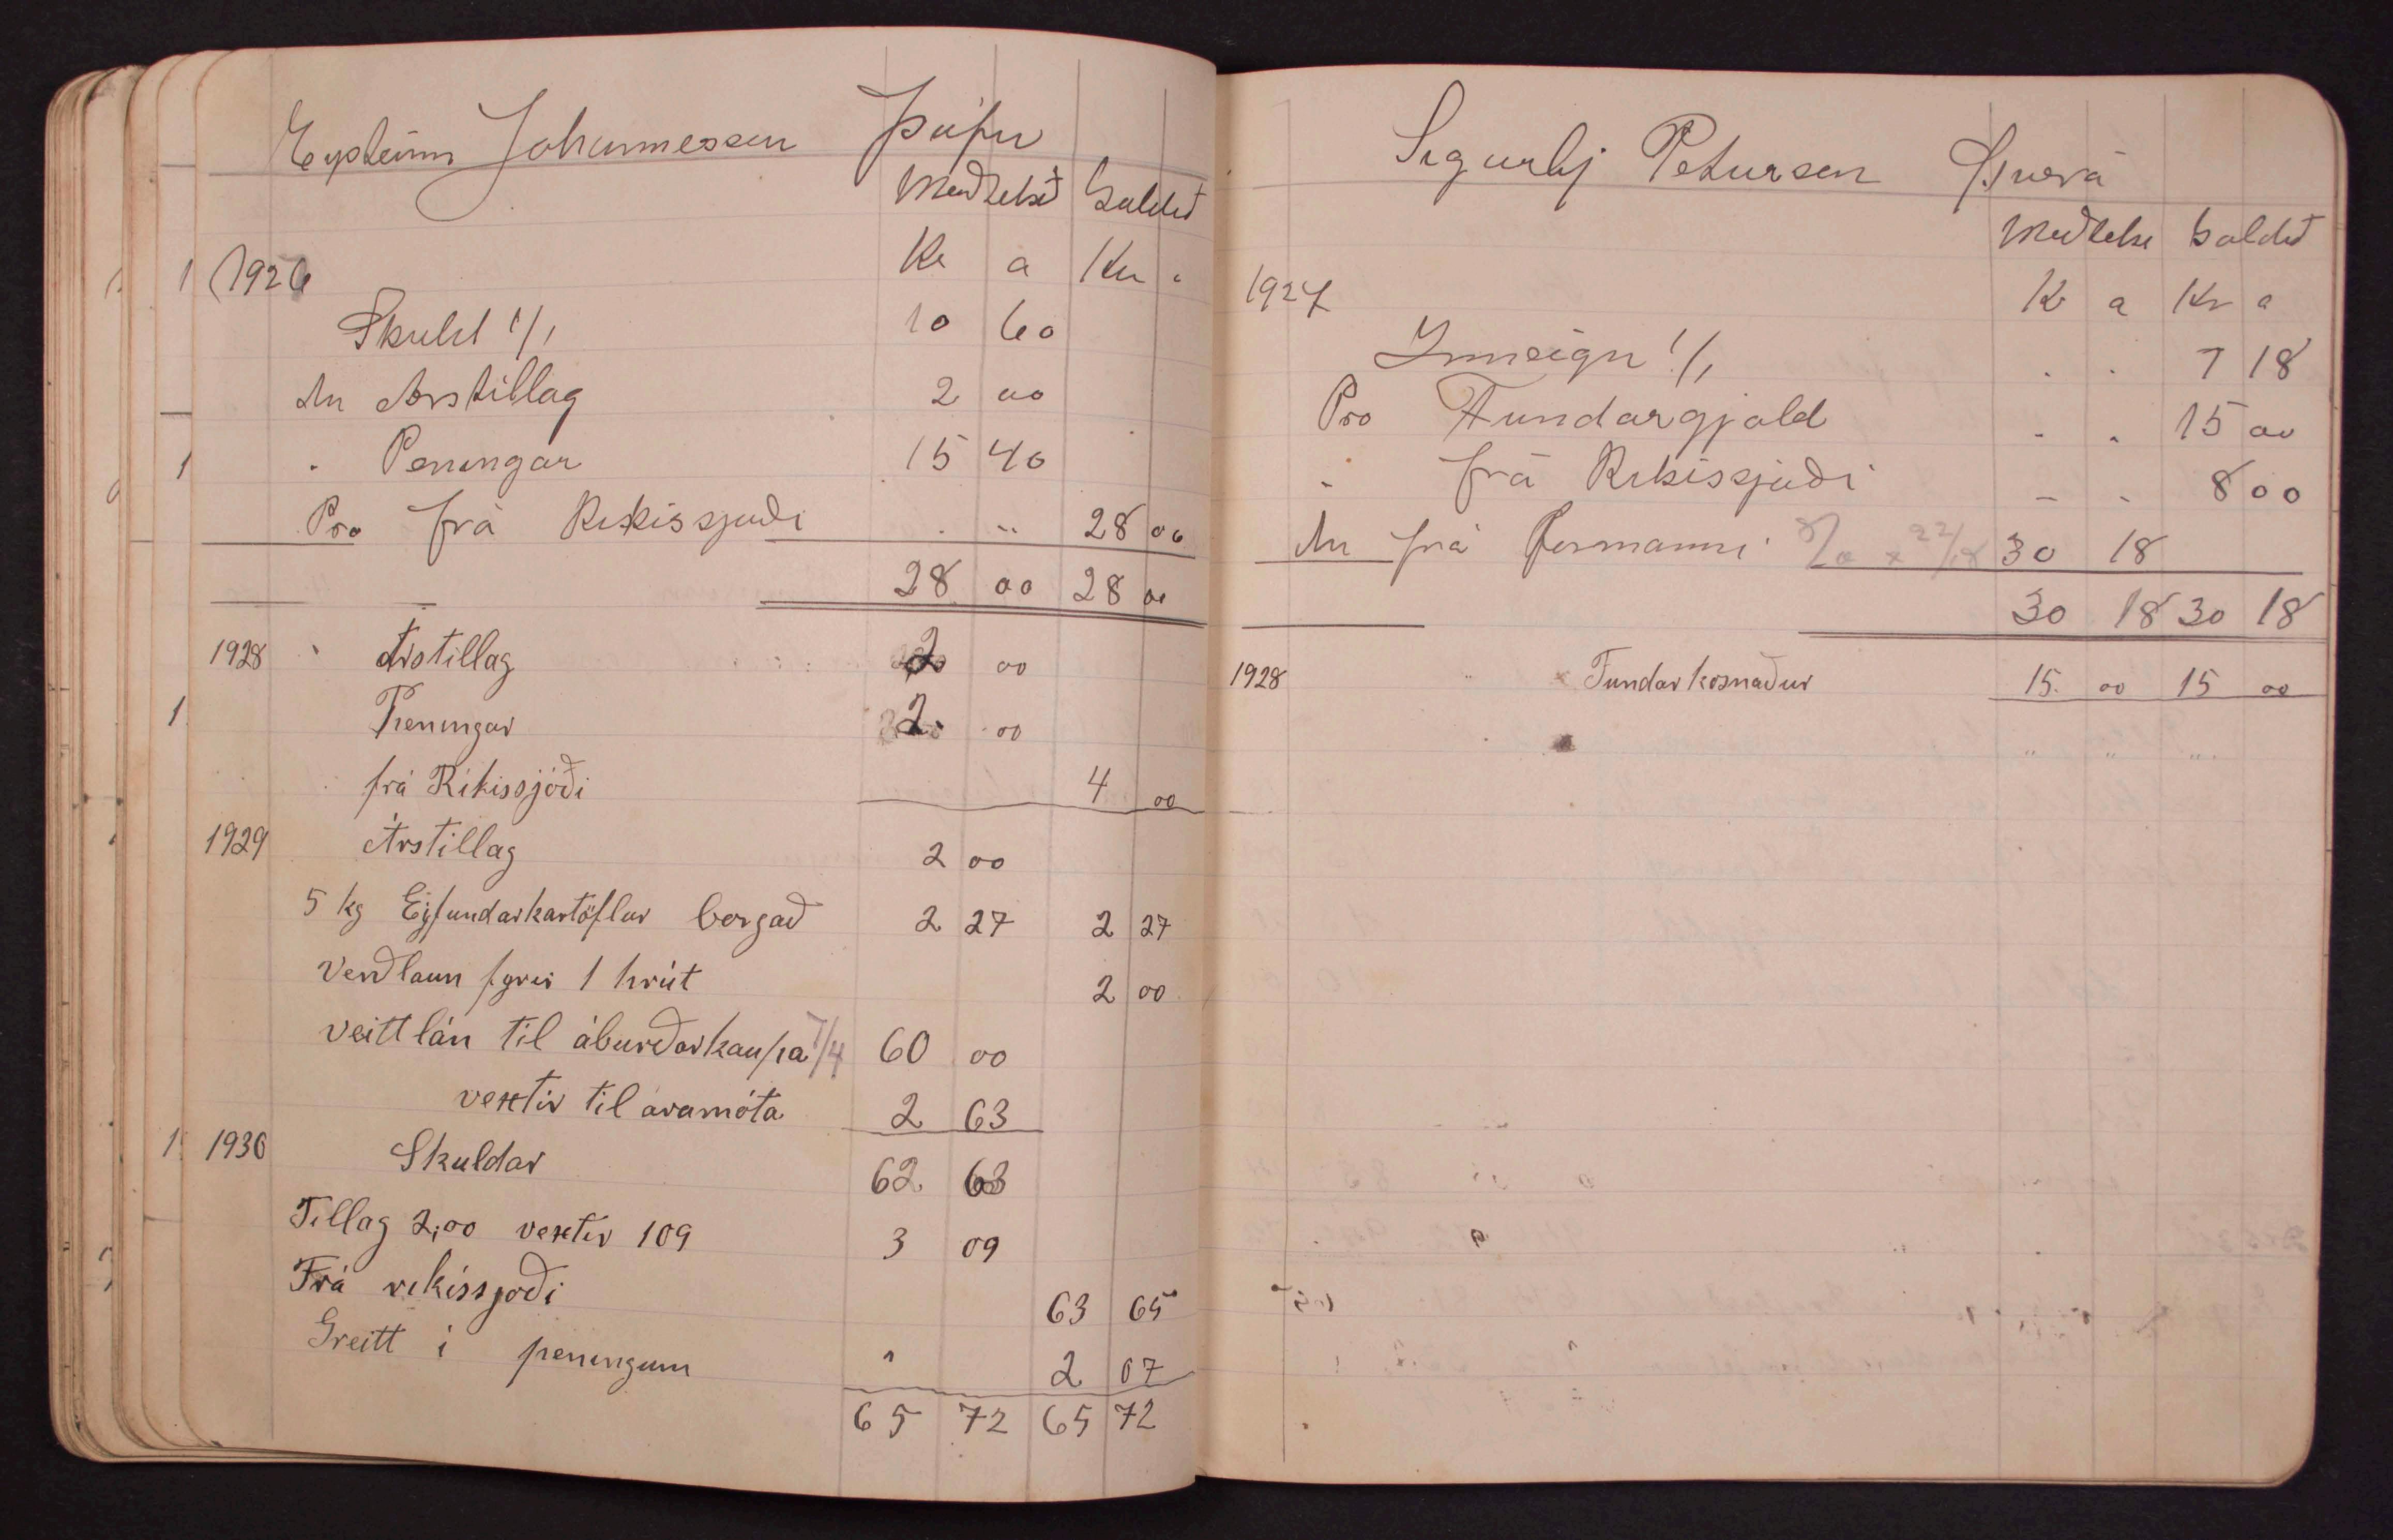 Eysteinn Johannesson Þúfu
Meðtekið Goldið
Kr a Kr a
1926
Skuld 1/1 10 60
An Arstillag 2 00
" Peningar 15 40
Pro frá Rikissjoði . .. 28 00
28 00 28 00
1928 " Árstillag 2 00
Peningar 2 00
frá Ríkissjóði 4 00
1929 Árstillag 2 00
5 kg borgað 2 27 2 27
Verðlaun fyrir 1 hrút 2 00
veitt lán til áburðarkaupa 7/4 60 00
vextir til aramóta 2 63
1930 Skuldar 62 63
Tillag 2,00 vextir 109 3 09
Frá rikissjoði 63 65
Greitt i peningum " 2 07
65 72 65 72
Sigurbj Petursson
Meðtekið Goldið
K a Kr a
1927
Inneign 1/1 . . 7 18
Pro Fundargjald . . 15 00
" frá Rikissjoði - - 8 00
An frá Formanni 30 18
30 18 30 18
1928 " Fundarkosnaður 15 00 15 00
" " "